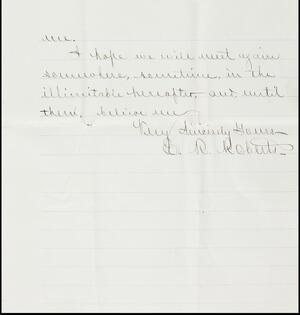 me.
I hope we will meet again
somewhere, sometime, in the
illimitable hereafter, and, until
then, believe me
Very Sincerely Yours
R. Roberts